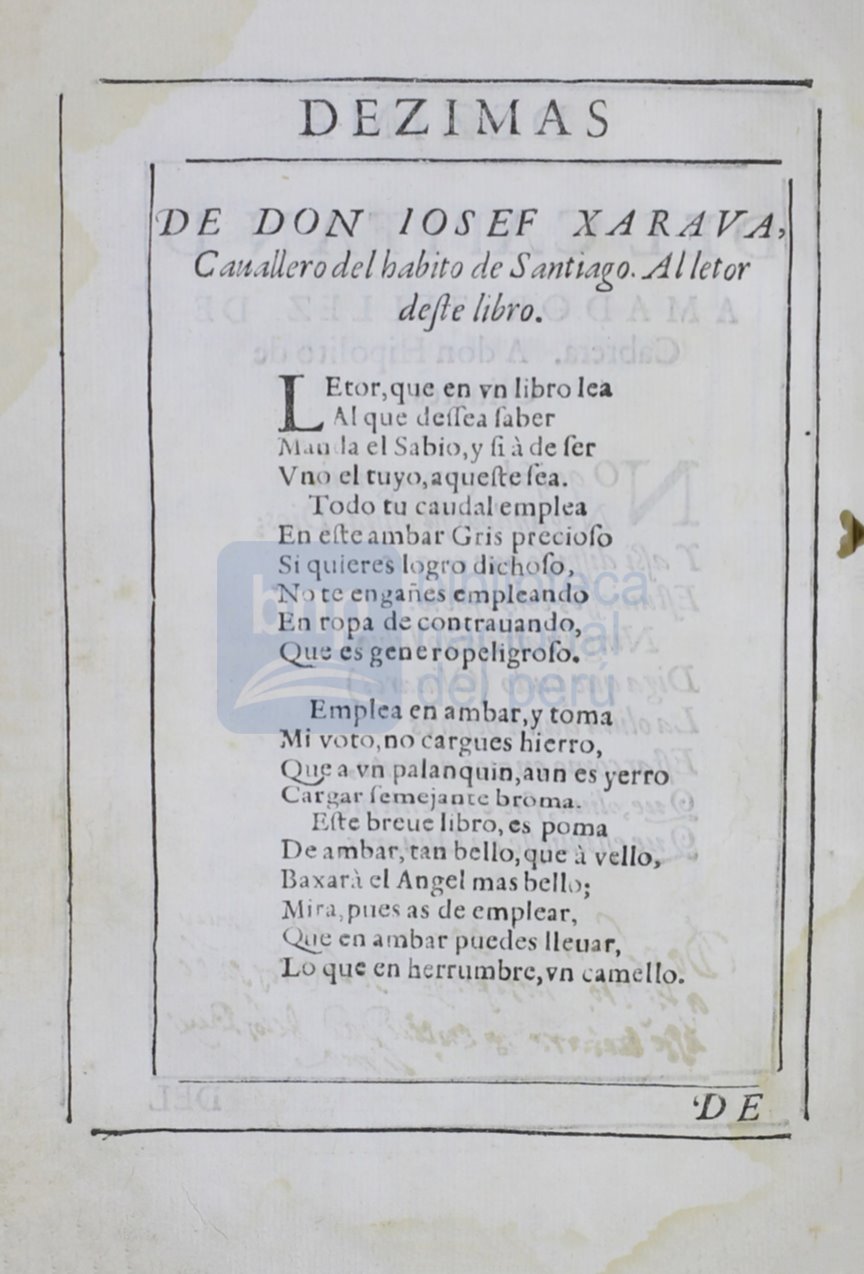 DEZIMAS
DE DON IOSEF XARAVA,
Cauallero del habito de Santiago. Al letor
deſte libro.
LEtor, que en vn libro lea
Al que deſſea ſaber
Manda el Sabio, y ſi à de ſer
Vno el tuyo, aqueſte ſea.
Todo tu caudal emplea
En eſte ambar Gris precioſo
Si quieres logro dichoſo,
No te engañes empleando
En ropa de contrauando,
Que es genero peligroſo.
Emplea en ambar, y toma
Mi voto, no cargues hierro,
Que a vn palanquin, aun es yerro
Cargar ſemejante broma.
Eſte breue libro, es poma
De ambar, tan bello, que à vello,
Baxarà el Angel mas bello;
Mira, pues as de emplear,
Que en ambar puedes lleuar,
Lo que en herrumbre, vn camello.
DE
bnp biblioteca
nacional
del perú